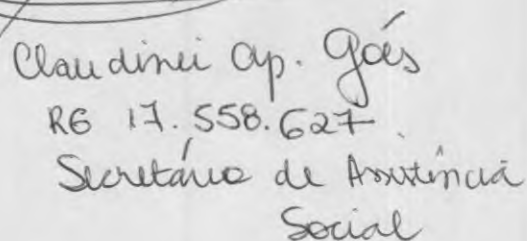 Claudinei Ap. Goés
RG 17.558.627
Secretário de Assistência
Social